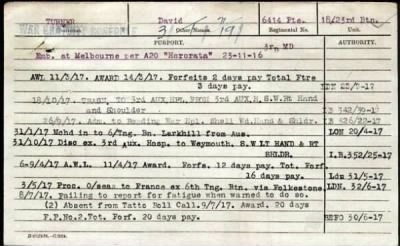 TURNER David 6414 Pte. 18/23rd Btn.
Surname Other Names Regimental No.
PURPORT. AUTHORITY.
3rd MD
Emb. at Melbourne per A20 "Hororata" 23-11-16
AWL 11/3/17. AWARD 14/3/17. Forfeits 2 days pay Total Ftre
3 days pay.
18/10/17. TO 3rd AUX.HPL. FROM 3rd AUX.H S.W.Rt Hand
and Shoulder
26/9/17. Adm. to Reading War Hpl. Shell Wd.Hand & Shldr.
31/1/17 Mchd in to 6/Tng. Bn. Larkhill from Aus. LON 20/4-17
31/10/17 Disc ex 3rd. Aux. Hosp. to Weymouth. S.W LT HAND & RT
SHLDR. I.B.352/25-17
6-9/4/17 A.W.L. 11/4/17 Award. Forfs. 12 days pay. Tot. Forf.
16 days pay. Ldn 31/5-17
3/5/17 Proc. O/seas to France ex 6th Tng. Btn. via Folkestone LDN. 32/6-17
8/7/17. Failing to report for fatigue when warned to do so.
(2) Absent from Tatts Roll Call.9/7/17. Award. 20 days
F.P.No.2.Tot. Forf. 20 days pay. REFO 30/6-17